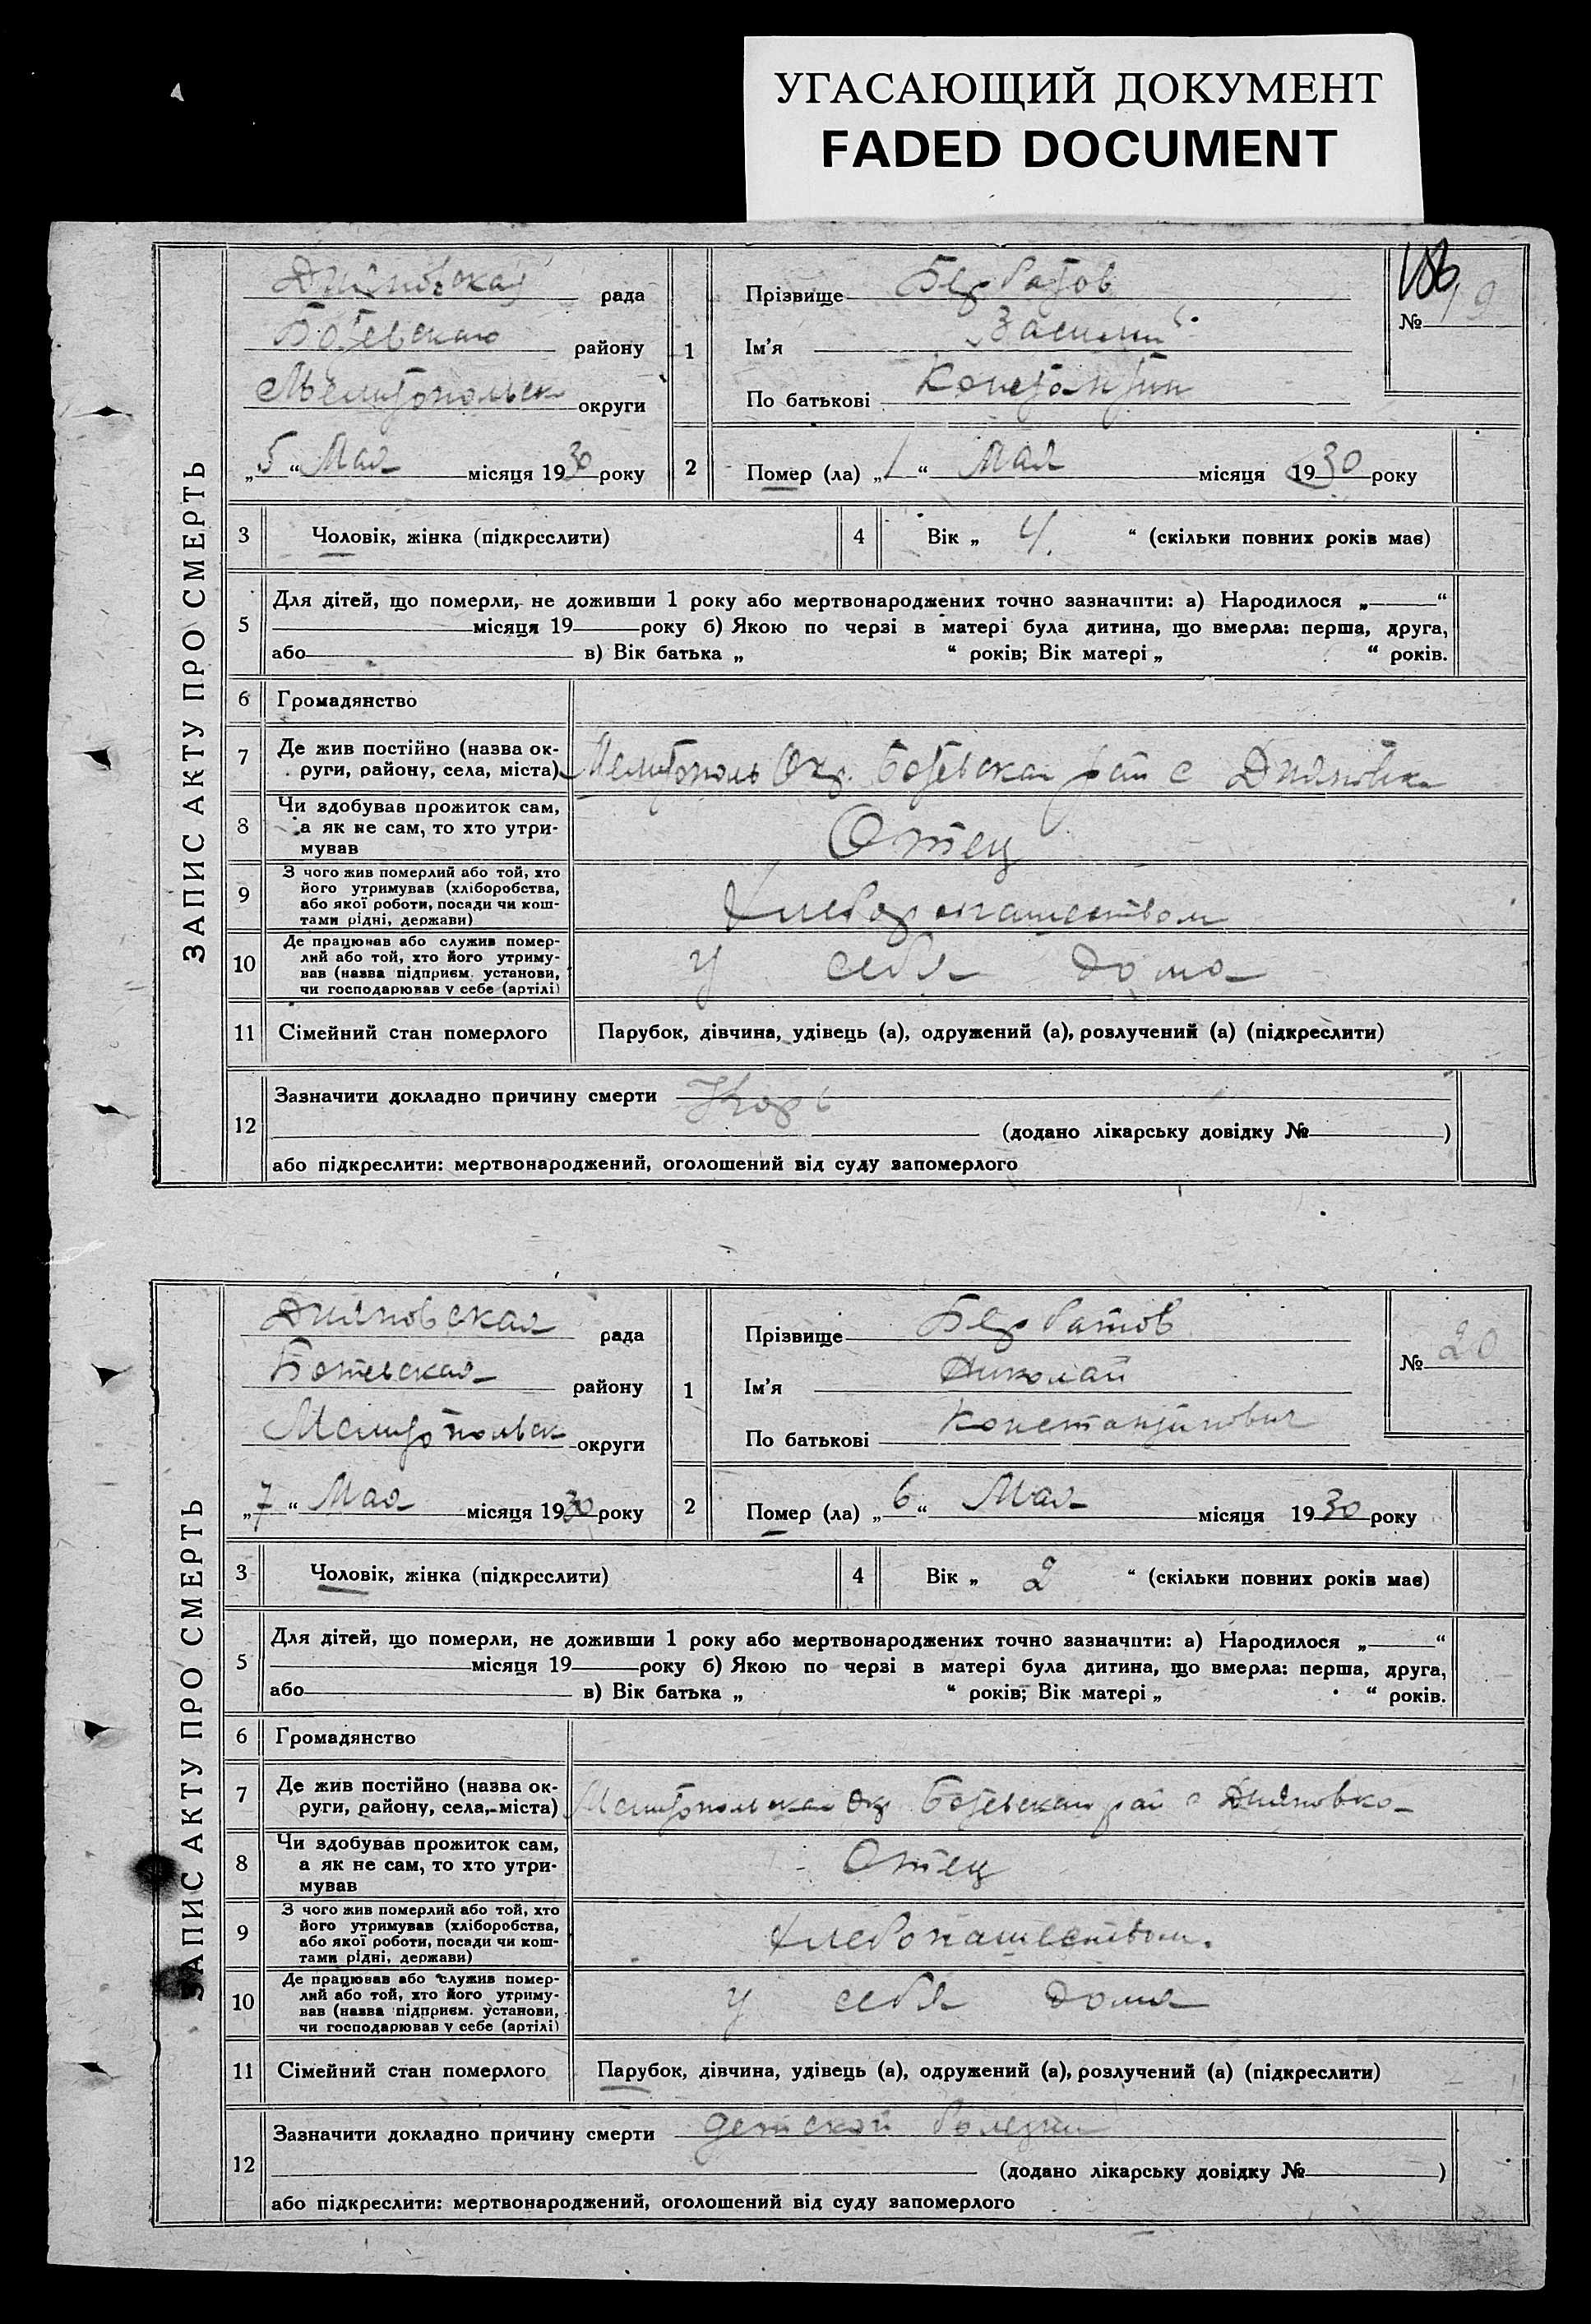 УГАСАЮЩИЙ ДОКУМЕНТ
FADED DOCUMENT
ЗАПИС АКТУ ПРО СМЕРТЬ
Дияновская рада
Ботевская району
Мелитопольск округи
„5“ Мая місяця 1930 року
1
Прізвище Бербатов
Ім'я Василий
По батькові Константин
186
№ 19
2
Помер (ла) „1“ Мая місяця 1930 року
3 Чоловік, жінка (підкреслити)
4 Вік „4.“ (скільки повних років має)
5 Для дітей, що померли, не доживши 1 року або мертвонароджених точно зазначити: а) Народилося „ “
місяця 19 року б) Якою по черзі в матері була дитина, що вмерла: перша, друга,
або в) Вік батька „ “ років; Вік матері „ “ років.
6 Громадянство
7 Де жив постійно (назва ок-
руги, району, села, міста) Мелитополь Окр. Ботевская рай с Дияновка
8 Чи здобував прожиток сам,
а як не сам, то хто утри-
мував
Отец
9 З чого жив померлий або той, хто
його утримував (хліборобства,
або якої роботи, посади чи кош-
тами рідні, держави)
10 Де працював або служив помер-
лий або той, хто його утриму-
вав (назва підприєм. установи,
чи господарював у себе (артілі)
у себя дома
11 Сімейний стан померлого Парубок, дівчина, удівець (а), одружений (а), розлучений (а) (підкреслити)
12 Зазначити докладно причину смерти Корь
(додано лікарську довідку № )
або підкреслити: мертвонароджений, оголошений від суду запомерлого
ЗАПИС АКТУ ПРО СМЕРТЬ
Дияновская рада
Ботевская району
Мелитопольск округи
„7“ Мая місяця 1930 року
1
Прізвище Бербатов
Ім'я Николай
По батькові Константинович
№ 20
2
Помер (ла) „6“ Мая місяця 1930 року
3 Чоловік, жінка (підкреслити)
4 Вік „2“ (скільки повних років має)
5 Для дітей, що померли, не доживши 1 року або мертвонароджених точно зазначити: а) Народилося „ “
місяця 19 року б) Якою по черзі в матері була дитина, що вмерла: перша, друга,
або в) Вік батька „ “ років; Вік матері „ “ років.
6 Громадянство
7 Де жив постійно (назва ок-
руги, району, села, міста) Мелитопольская Окр Ботевская рай с Дияновка
8 Чи здобував прожиток сам,
а як не сам, то хто утри-
мував
Отец
9 З чого жив померлий або той, хто
його утримував (хліборобства,
або якої роботи, посади чи кош-
тами рідні, держави)
Хлебопашеством.
10 Де працював або служив помер-
лий або той, хто його утриму-
вав (назва підприєм. установи,
чи господарював у себе (артілі)
у себя дома
11 Сімейний стан померлого Парубок, дівчина, удівець (а), одружений (а), розлучений (а) (підкреслити)
12 Зазначити докладно причину смерти детской болезни
(додано лікарську довідку № )
або підкреслити: мертвонароджений, оголошений від суду запомерлого